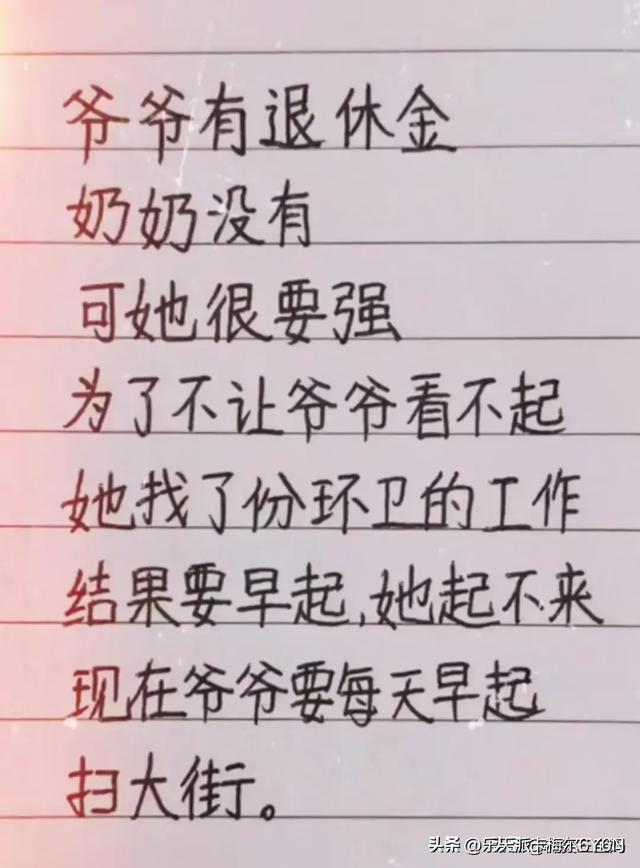 爷爷有退休金
奶奶没有
可她很要强
为了不让爷爷看不起
她找了份环卫的工作
结果要早起,她起不来
现在爷爷要每天早起
扫大街。
头条